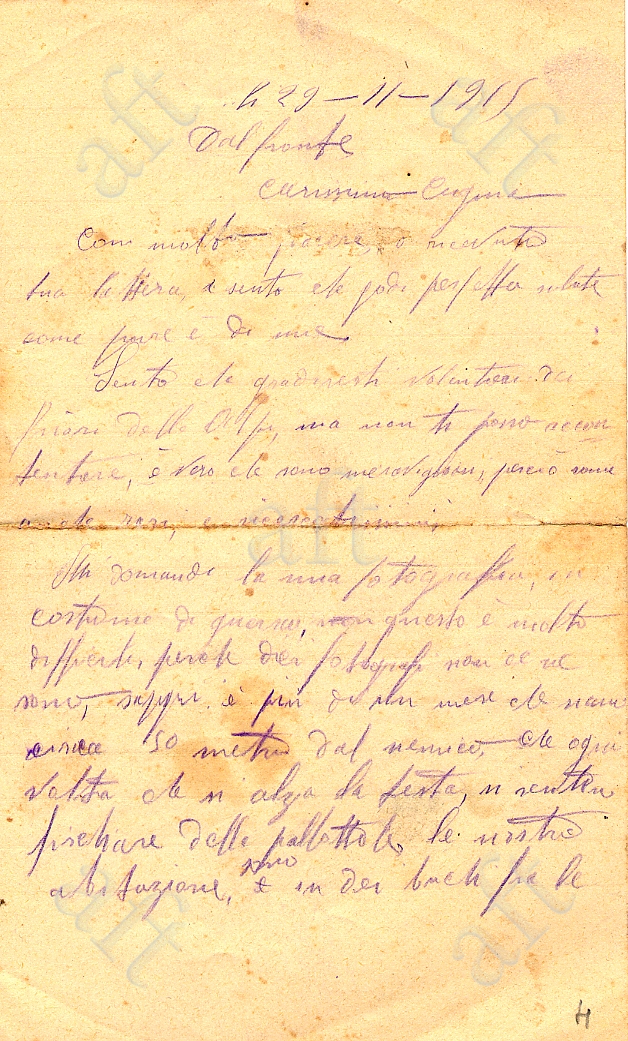 li 29-11-1915
Dal fronte
Carissimo Cugina
Con molto piacere, o ricevuto
tua lettera, e sento che godi perfetta salute
come pure è di me.
Sento che gradiresti volentieri dei
fiori delle Alpi, ma non ti posso accon
tentare, è vero che sono meravigliosi, perciò sono
anche rari, e
Mi domandi la mia fotografia, in
costume di guerra, questo è molto
difficile, perche dei fotografi non ce ne
sono, sappi è più di un mese che siamo
circa 50 metri dal nemico, che ogni
volta che si alza la testa, si sentono
fischiare delle pallottole, le nostre
abitazione, sono in dei buchi fra le
4
aft
aft
aft
aft
aft